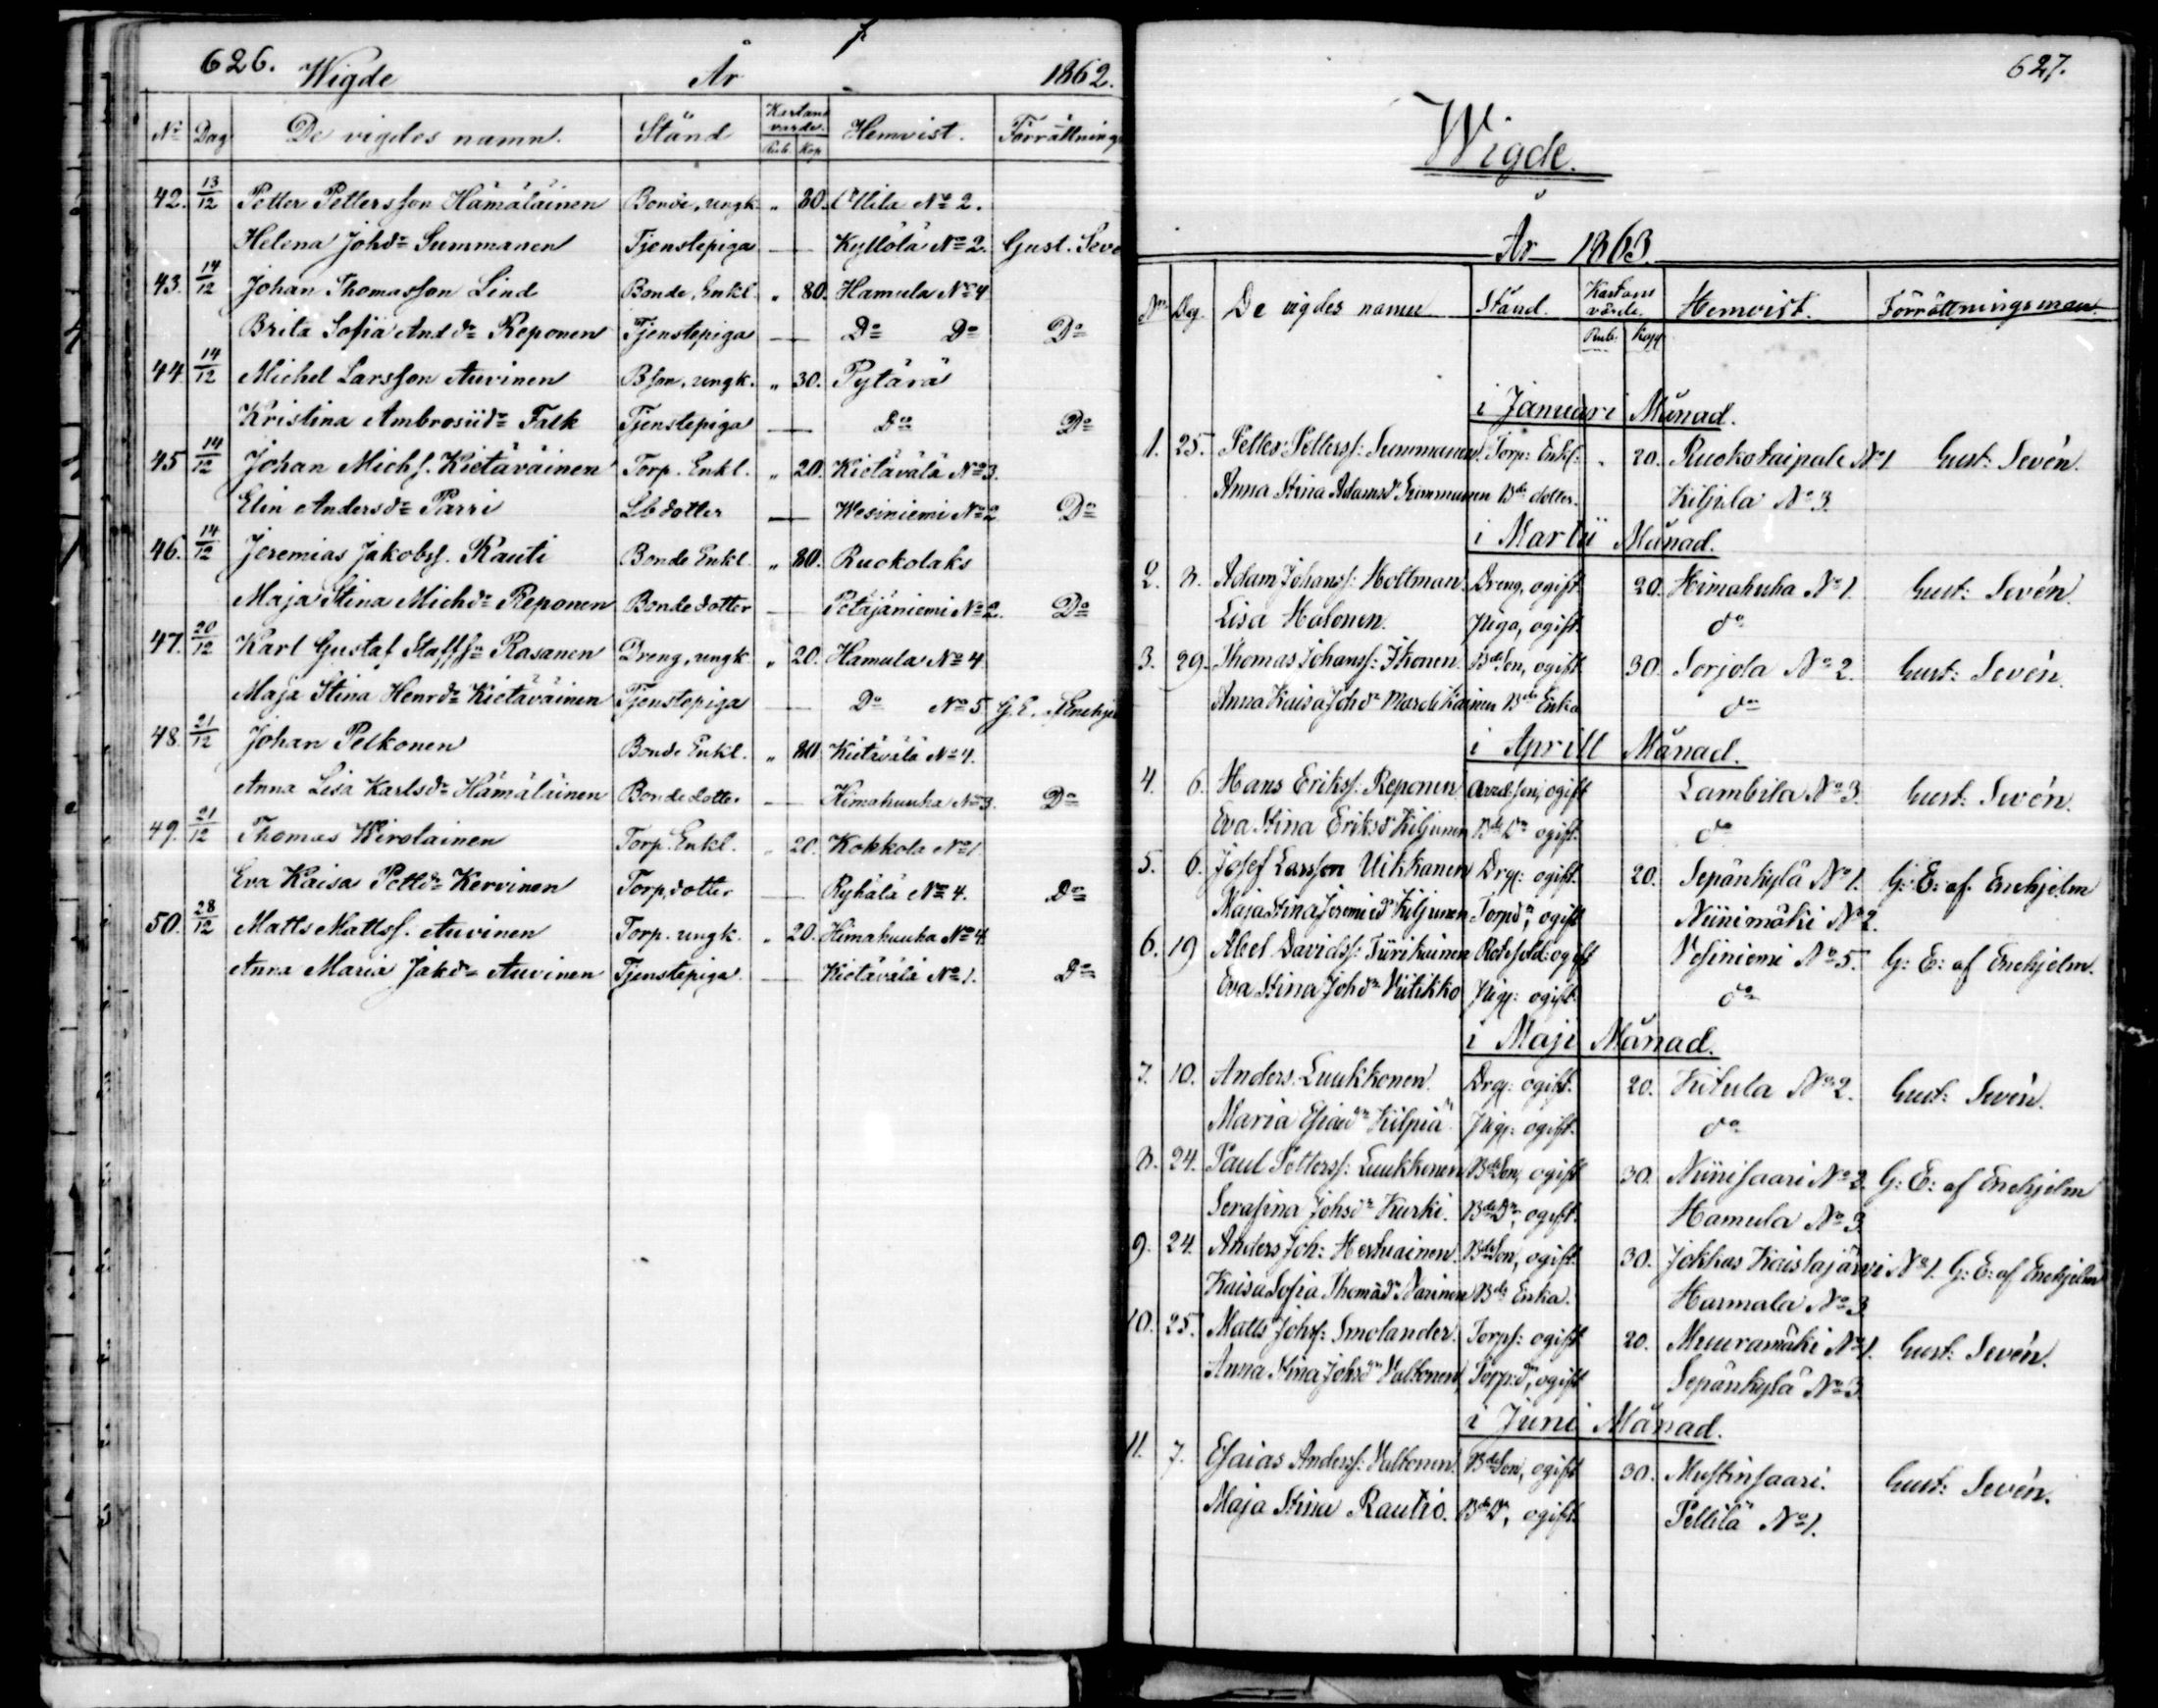 626. Wigde År 1862.
No Dag De vigdes namn. Stånd Karlens värde. Hemvist. Förrättnings
Rub. Kop
42. 13/12 Petter Pettersson Hämäläinen Bonde, ungk. " 80. Attila No 2.
Helena Johdr Summanen Tjenstepiga — Kyllölä No 2. Gust. Seve
43. 14/12 Johan Thomasson Lind Bonde, Enkl. " 80. Hamula No 4
Brita Sofia Anddr Reponen Tjenstepiga — Do Do Do
44. 14/12 Michel Larsson Auvinen Bson, ungk. " 30. Pytärä
Kristina Ambrosiidr Falk Tjenstepiga — Do Do
45 14/12 Johan Michs. Kietäväinen Torp. Enkl. " 20. Kietävälä No 3.
Elin Andersdr Parri Lbdotter — Wesiniemi No 2 Do
46. 14/12 Jeremias Jakobss. Rauti Bonde Enkl. " 80. Ruokolaks
Maja Stina Michdr Reponen Bondedotter — Petäjäniemi No 2. Do
47. 20/12 Karl Gustaf Staffsn Räsänen Dreng, ungk. " 20. Hamula No 4
Maja Stina Henrdr Kietäväinen Tjenstepiga — Do No 5 G. E. af Enehje
48. 21/12 Johan Pelkonen Bonde Enkl. " 80 Kietävälä No 4.
Anna Lisa Karlsdr Hämäläinen Bondedotter — Himahuuha No 3. Do
49. 21/12 Thomas Wirolainen Torp. Enkl. " 20. Kokkola No 1
Eva Kaisa Pettdr Kervinen Torpdotter — Ryhälä No 4. Do
50. 28/12 Matts Mattss. Auvinen Torp. ungk. " 20. Himahuuha No 4
Anna Maria Jakdr Auvinen Tjenstepiga — Kietävälä No 1. Do
627.
Wigde.
År 1863.
No Dag. De vigdes namn Stånd. Karlens värde. Hemvist. Förrättningsman
Rub. Kop
i Januari Månad.
1. 25. Petter Petterss: Summanen. Torp: Enkl: " 20. Ruokotaipale No 1 Gust: Sevén.
Anna Stina Adamsdr Summanen Bde dotter. Kiljula No 3.
i Martii Månad.
2. 8. Adam Johanss: Holtman. Dreng, ogift 20. Himahuha No 1. Gust: Sevén.
Lisa Halonen. Piga, ogift. do
3. 29. Thomas Johanss: Ikonen. Bde Son, ogift 30. Sorjola No 2. Gust: Sevén.
Anna Kaisa Johdr Mardikainen Bde Enka do
i Aprill Månad.
4. 6. Hans Erikss: Reponen. ogift Lambila No 3. Gust: Sevén.
Eva Stina Eriksdr Kiljunen Bde Dr ogift. do
5. 6. Josef Larsson Uikkanen Drg: ogift. 20. Sepänkylä No 1. G: E: af Enehjelm
Maja Stina Jeremiedr Kiljunen Torpdr, ogift Niinimäki No 2.
6. 19 Abel Davidss: Tiirikainen Rotesold: ogift Vesiniemi No 5. G: E: af Enehjelm.
Eva Stina Johdr Viitikko Pig: ogift. do
i Maji Månad.
7. 10. Anders Luukkonen. Drg: ogift. 20. Kitula No 2. Gust: Sevén.
Maria Esaiedr Kilpiä Pig: ogift. do
8. 24. Paul Petterss: Luukkonen Bde Son, ogift 30. Niinisaari No 2. G: E: af Enehjelm
Serafina Johsdr Kurki. Bde Dr, ogift. Hamula No 3
9. 24. Anders Joh: Heskuainen. Bde Son, ogift. 30. Jokkas Kaislajärvi No 1. G: E: af Enehjelm
Kaisa Sofia Thomädr Narinen Bde Enka. Harmala No 3
10. 25. Matts Johss: Smolander. Torps: ogift 20. Muuramäki No 1. Gust: Sevén.
Anna Stina Johsdr Valtonen Torp:dr, ogift Sepänkylä No 3
i Juni Månad.
11. 7. Esaias Anderss: Valtonen. Bde Son, ogift 30. Mustinsaari. Gust: Sevén.
Maja Stina Rautio. Bde Dr, ogift. Pellilä No 1.